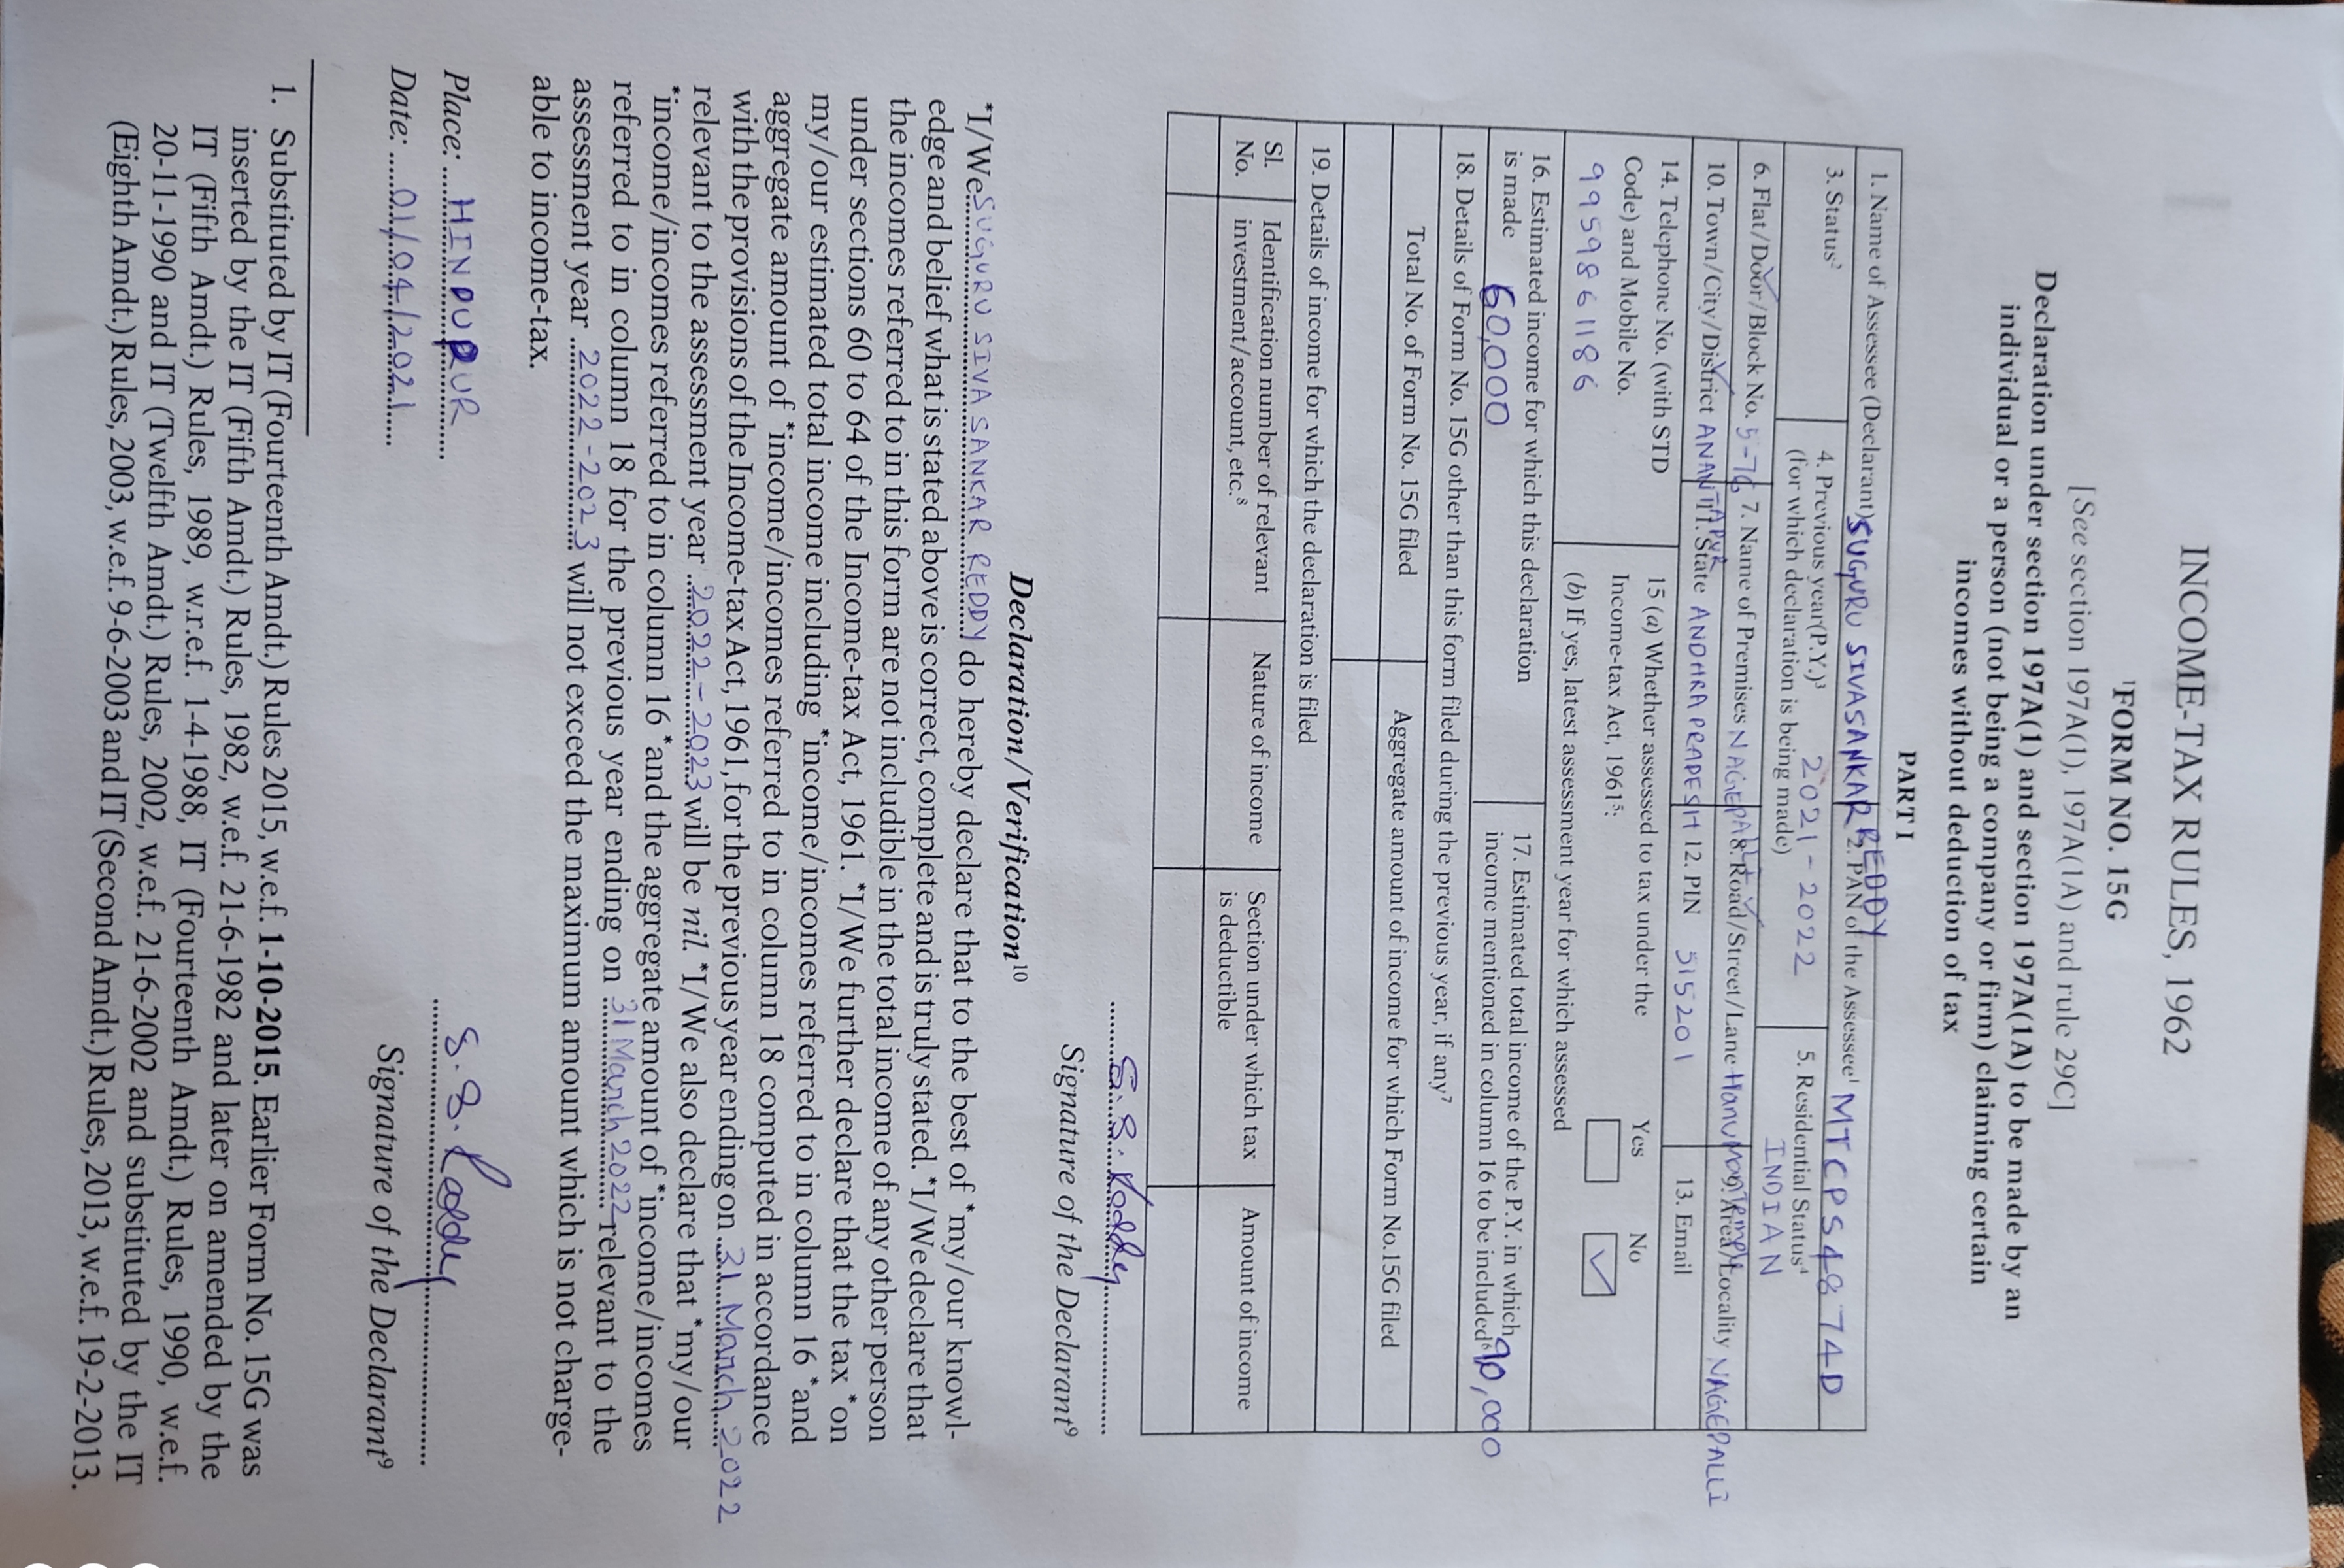 INCOME-TAX RULES, 1962
¹FORM NO. 15G
[See section 197A(1), 197A(1A) and rule 29C]
Declaration under section 197A(1) and section 197A(1A) to be made by an
individual or a person (not being a company or firm) claiming certain
incomes without deduction of tax
PART I
1. Name of Assessee (Declarant) SUGURU SIVASANKAR REDDY 2. PAN of the Assessee¹ MTCPS4874D
3. Status² 4. Previous year(P.Y.)³ 2021-2022 5. Residential Status⁴
(for which declaration is being made) INDIAN
6. Flat/Door/Block No. 5-76 7. Name of Premises NAGEPALLI 8. Road/Street/Lane 9. Area/Locality NAGEPALLI
10. Town/City/District ANANTAPUR 11. State ANDHRA PRADESH 12. PIN 515201 13. Email
14. Telephone No. (with STD 15 (a) Whether assessed to tax under the Yes No
Code) and Mobile No. Income-tax Act, 1961⁵: ✓
9959861186 (b) If yes, latest assessment year for which assessed
16. Estimated income for which this declaration 17. Estimated total income of the P.Y. in which
is made 60,000 income mentioned in column 16 to be included⁶ 90,000
18. Details of Form No. 15G other than this form filed during the previous year, if any⁷
Total No. of Form No. 15G filed Aggregate amount of income for which Form No.15G filed
19. Details of income for which the declaration is filed
Sl. Identification number of relevant Nature of income Section under which tax Amount of income
No. investment/account, etc.⁸ is deductible
S.S. Reddy
Signature of the Declarant⁹
Declaration/Verification¹⁰
*I/We SUGURU SIVA SANKAR REDDY do hereby declare that to the best of *my/our knowl-
edge and belief what is stated above is correct, complete and is truly stated. *I/We declare that
the incomes referred to in this form are not includible in the total income of any other person
under sections 60 to 64 of the Income-tax Act, 1961. *I/We further declare that the tax *on
my/our estimated total income including *income/incomes referred to in column 16 *and
aggregate amount of *income/incomes referred to in column 18 computed in accordance
with the provisions of the Income-tax Act, 1961, for the previous year ending on 31 March 2022
relevant to the assessment year 2022-2023 will be nil. *I/We also declare that *my/our
*income/incomes referred to in column 16 *and the aggregate amount of *income/incomes
referred to in column 18 for the previous year ending on 31 March 2022 relevant to the
assessment year 2022-2023 will not exceed the maximum amount which is not charge-
able to income-tax.
Place: HINDUPUR
Date: 01/04/2021
S.S. Reddy
Signature of the Declarant⁹
1. Substituted by IT (Fourteenth Amdt.) Rules 2015, w.e.f. 1-10-2015. Earlier Form No. 15G was
inserted by the IT (Fifth Amdt.) Rules, 1982, w.e.f. 21-6-1982 and later on amended by the
IT (Fifth Amdt.) Rules, 1989, w.r.e.f. 1-4-1988, IT (Fourteenth Amdt.) Rules, 1990, w.e.f.
20-11-1990 and IT (Twelfth Amdt.) Rules, 2002, w.e.f. 21-6-2002 and substituted by the IT
(Eighth Amdt.) Rules, 2003, w.e.f. 9-6-2003 and IT (Second Amdt.) Rules, 2013, w.e.f. 19-2-2013.